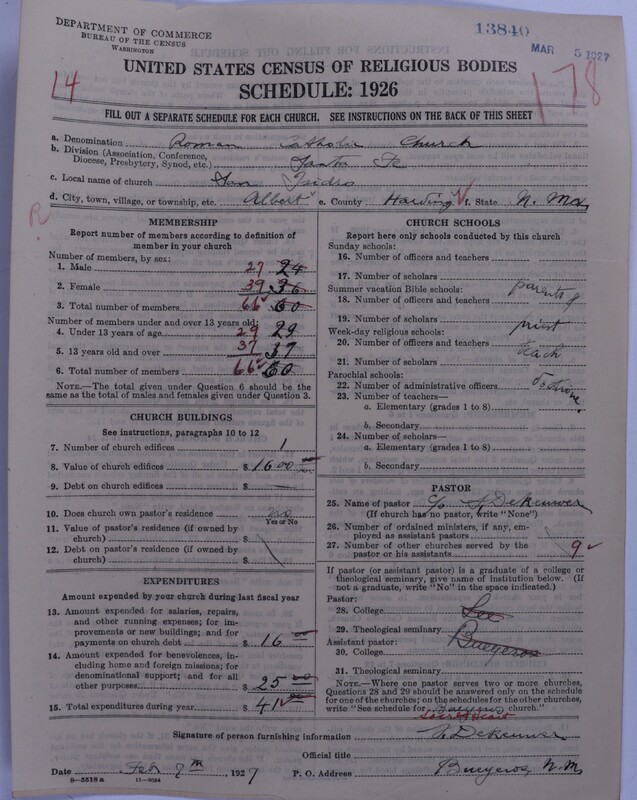 DEPARTMENT OF COMMERCE
BUREAU OF THE CENSUS
WASHINGTON
13840
MAR 5 1927
UNITED STATES CENSUS OF RELIGIOUS BODIES
SCHEDULE: 1926
14
178
FILL OUT A SEPARATE SCHEDULE FOR EACH CHURCH. SEE INSTRUCTIONS ON THE BACK OF THIS SHEET
a. Denomination Roman Catholic Church
b. Division (Association, Conference, Diocese, Presbytery, Synod, etc.) Santa Fe
c. Local name of church San Isidro
d. City, town, village, or township, etc. Albert e. County Harding f. State N. Mex
R
MEMBERSHIP
Report number of members according to definition of
member in your church
Number of members, by sex:
1. Male 27 24
2. Female 39 36
3. Total number of members 66 60
Number of members under and over 13 years old:
4. Under 13 years of age 29 29
5. 13 years old and over 37 37
6. Total number of members 66 60
NOTE.—The total given under Question 6 should be
same as the total of males and females given under Question 3.
CHURCH BUILDINGS
See instructions, paragraphs 10 to 12
7. Number of church edifices 1
8. Value of church edifices $ 1600
9. Debt on church edifices $
10. Does church own pastor's residence? no
Yes or No
11. Value of pastor's residence (if owned by
church) $
12. Debt on pastor's residence (if owned by
church) $
EXPENDITURES
Amount expended by your church during last fiscal year
13. Amount expended for salaries, repairs,
and other running expenses; for im-
provements or new buildings; and for
payments on church debt $ 16 00
14. Amount expended for benevolences, in-
cluding home and foreign missions; for
denominational support; and for all
other purposes $ 25 00
15. Total expenditures during year $ 41 00
CHURCH SCHOOLS
Report here only schools conducted by this church
Sunday schools:
16. Number of officers and teachers
17. Number of scholars
Summer vacation Bible schools: parents &
18. Number of officers and teachers
19. Number of scholars priest
Week-day religious schools:
20. Number of officers and teachers teach
21. Number of scholars
Parochial schools:
22. Number of administrative officers
23. Number of teachers—
a. Elementary (grades 1 to 8)
b. Secondary
24. Number of scholars—
a. Elementary (grades 1 to 8)
b. Secondary
PASTOR
25. Name of pastor
(If church has no pastor, write "None")
26. Number of ordained ministers, if any, em-
ployed as assistant pastors
27. Number of other churches served by the
pastor or his assistants 9
If pastor (or assistant pastor) is a graduate of a college or
theological seminary, give name of institution below. (If
not a graduate, write "No" in the space indicated.)
Pastor:
28. College See
29. Theological seminary
Assistant pastor: Bueyeros
30. College
31. Theological seminary
NOTE.—Where one pastor serves two or more churches,
Questions 28 and 29 should be answered only on the schedule
for one of the churches; on the schedules for the other churches,
write "See schedule for Bueyeros church."
Sacred Heart
Signature of person furnishing information
Official title
Date Feb 7th, 1927 P. O. Address Bueyeros, N. M.
8-5518 a 11-9084